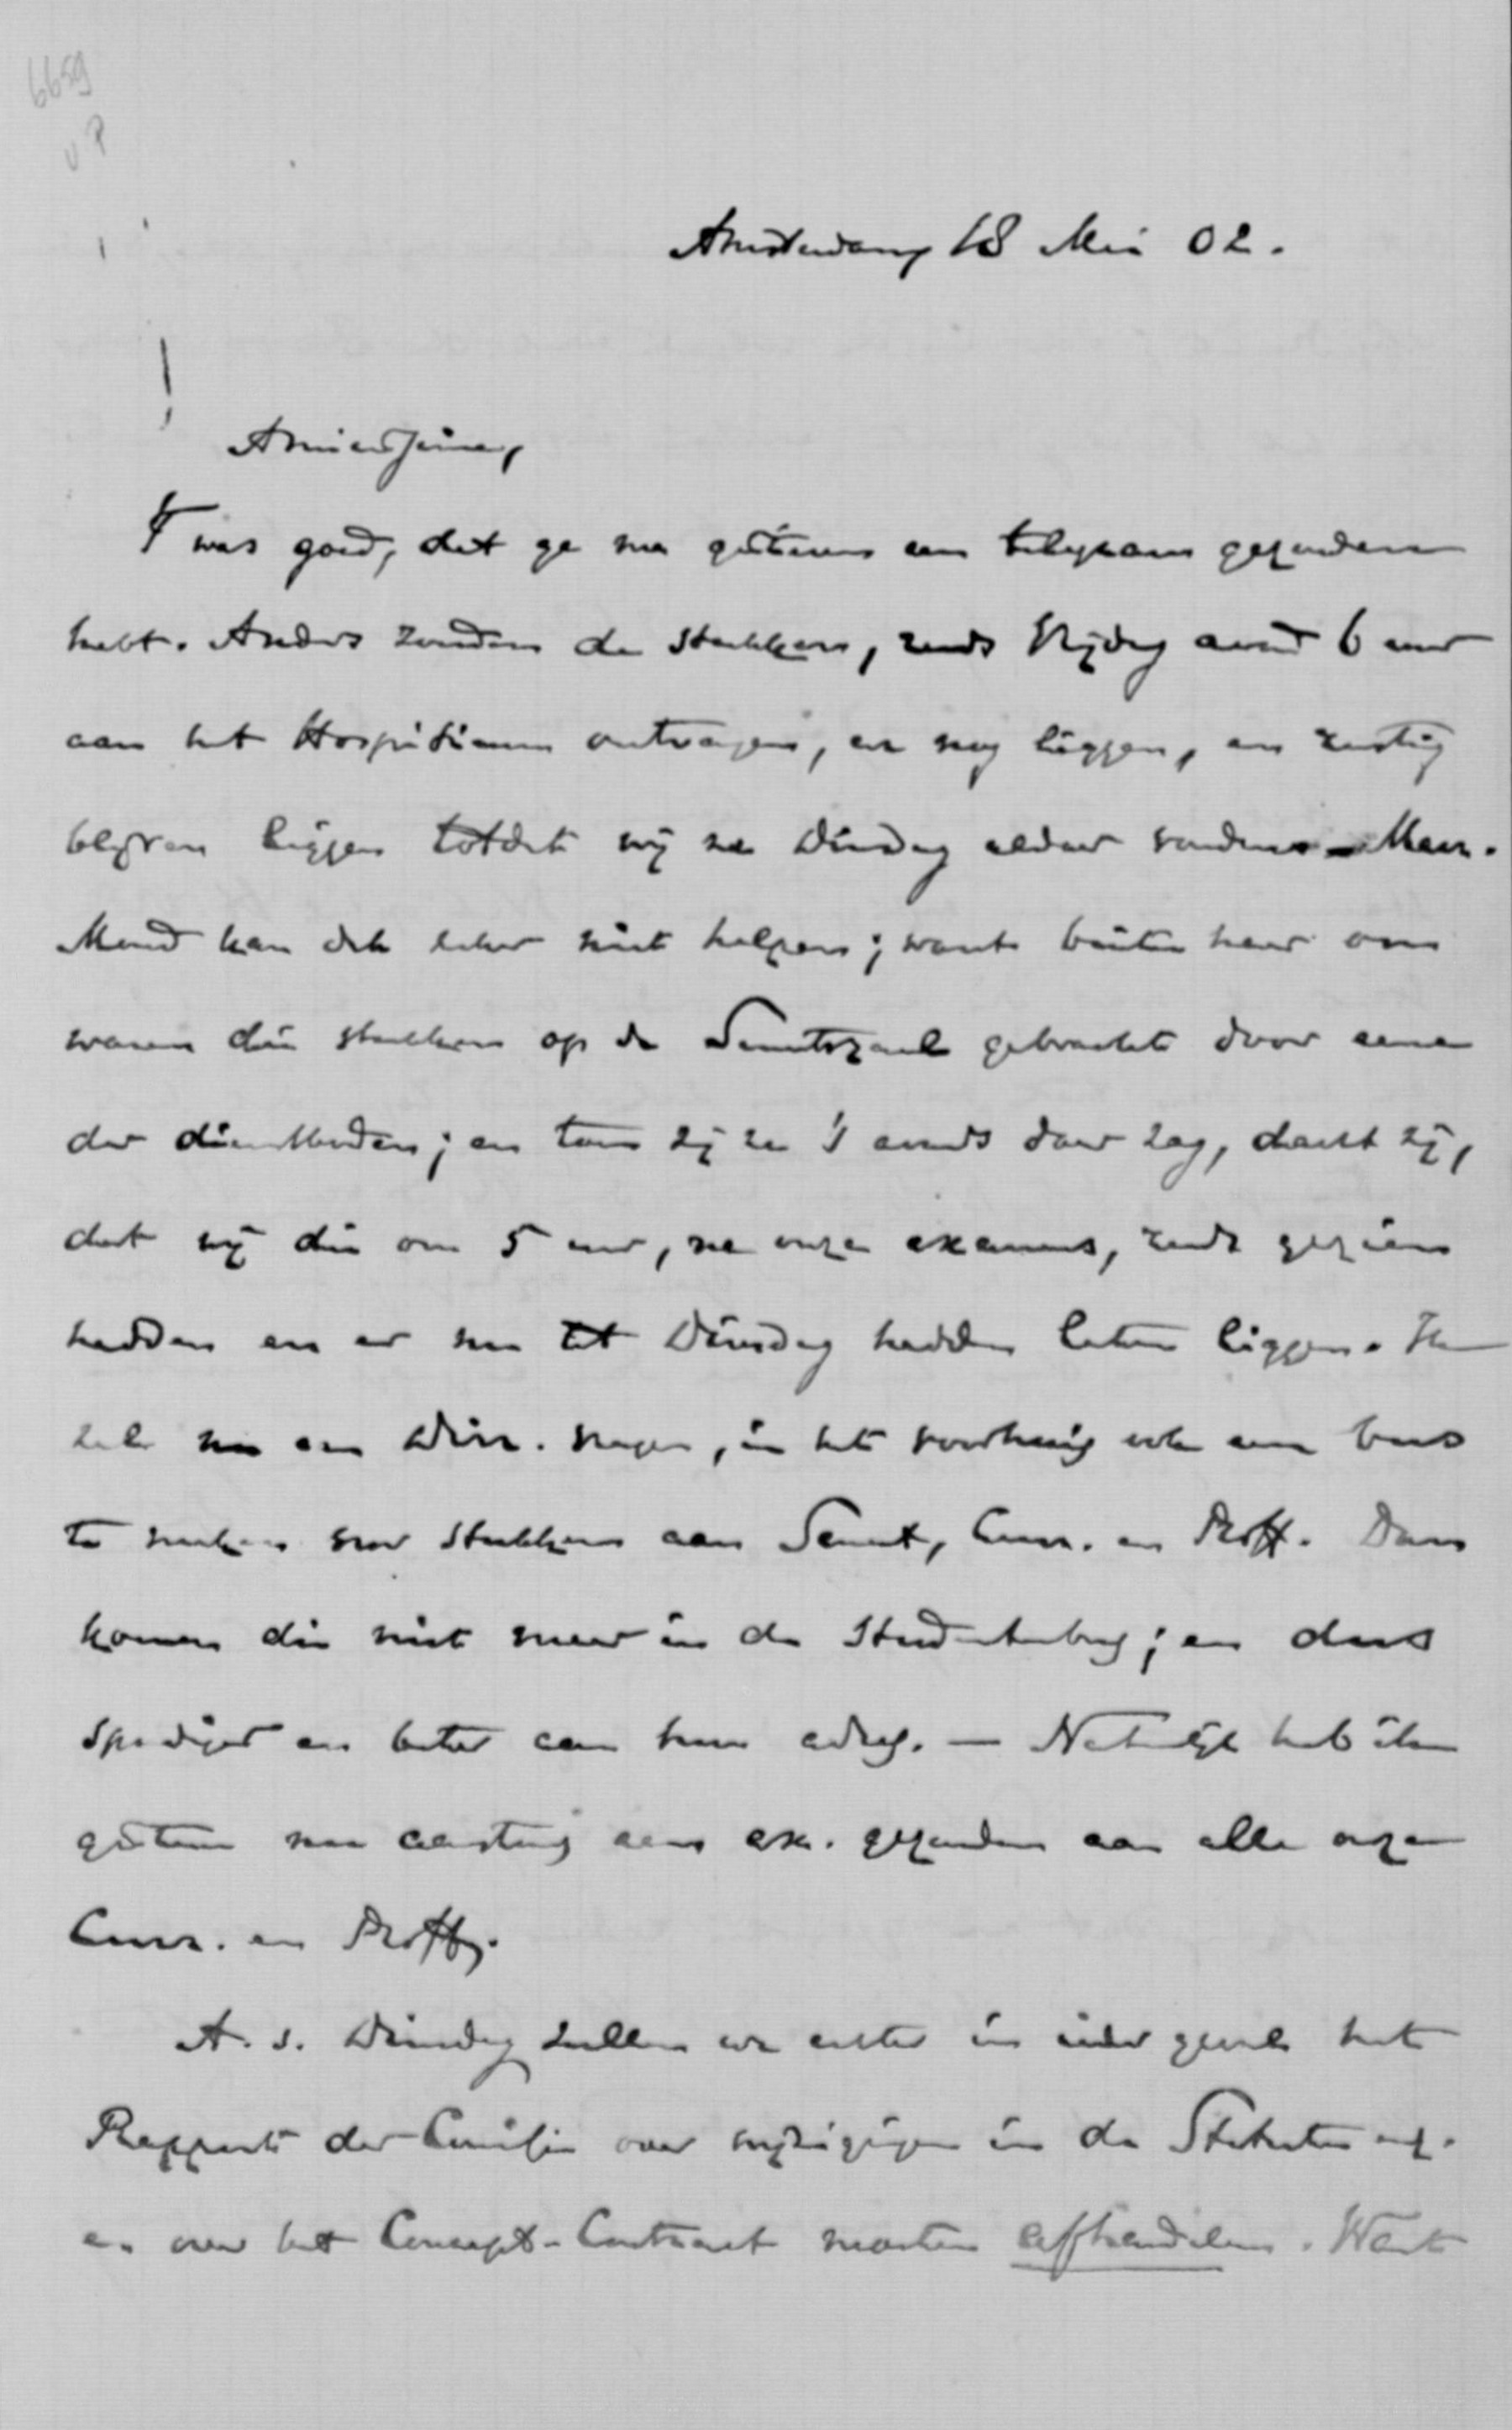 6659
Amsterdam 18 Mei 02.
Amicissime,
't was goed, dat ge me gisteren een telegram gezonden
hebt. Anders zouden de stukken, reeds Vrijdag avond 6 uur
aan het Hospitium ontvangen, er nog liggen, en rustig
blijven liggen totdat wij ze Dinsdag aldaar vonden. Mevr.
kan dat zeker niet helpen; want buiten haar om
waren die stukken op de Senaatszaal gebracht door eene
der dienstboden; en toen zij ze 's avonds daar zag, dacht zij,
dat wij die om 5 uur, na onze examens, reeds gezien
hadden en er nu tot Dinsdag hadden laten liggen. Ik
zal nu aan Dirr. vragen, in het voorhuis ook een bus
te maken voor stukken aan Senaat, Curr. en Proff. Dan
komen die niet meer in de Studentenbus; en dus
spoediger en beter aan hun adres. — Natuurlijk heb ik
gisteren na aanstonds een ex. gezonden aan alle onze
Curr. en Proff.
A. s. Dinsdag zullen we echter in ieder geval het
Rapport der Commissie over wijzigingen in de Statuten enz.
en over het Concept-Contract moeten afhandelen. Want